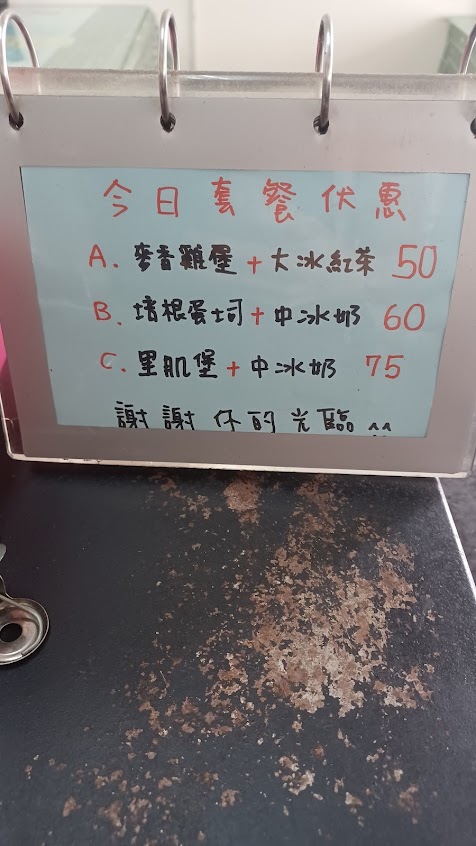 今日套餐伏惠
A. 麥香雞堡 + 大冰紅茶 50
B. 培根蛋土司 + 中冰奶 60
C. 里肌堡 + 中冰奶 75
謝謝你的光臨 ^^